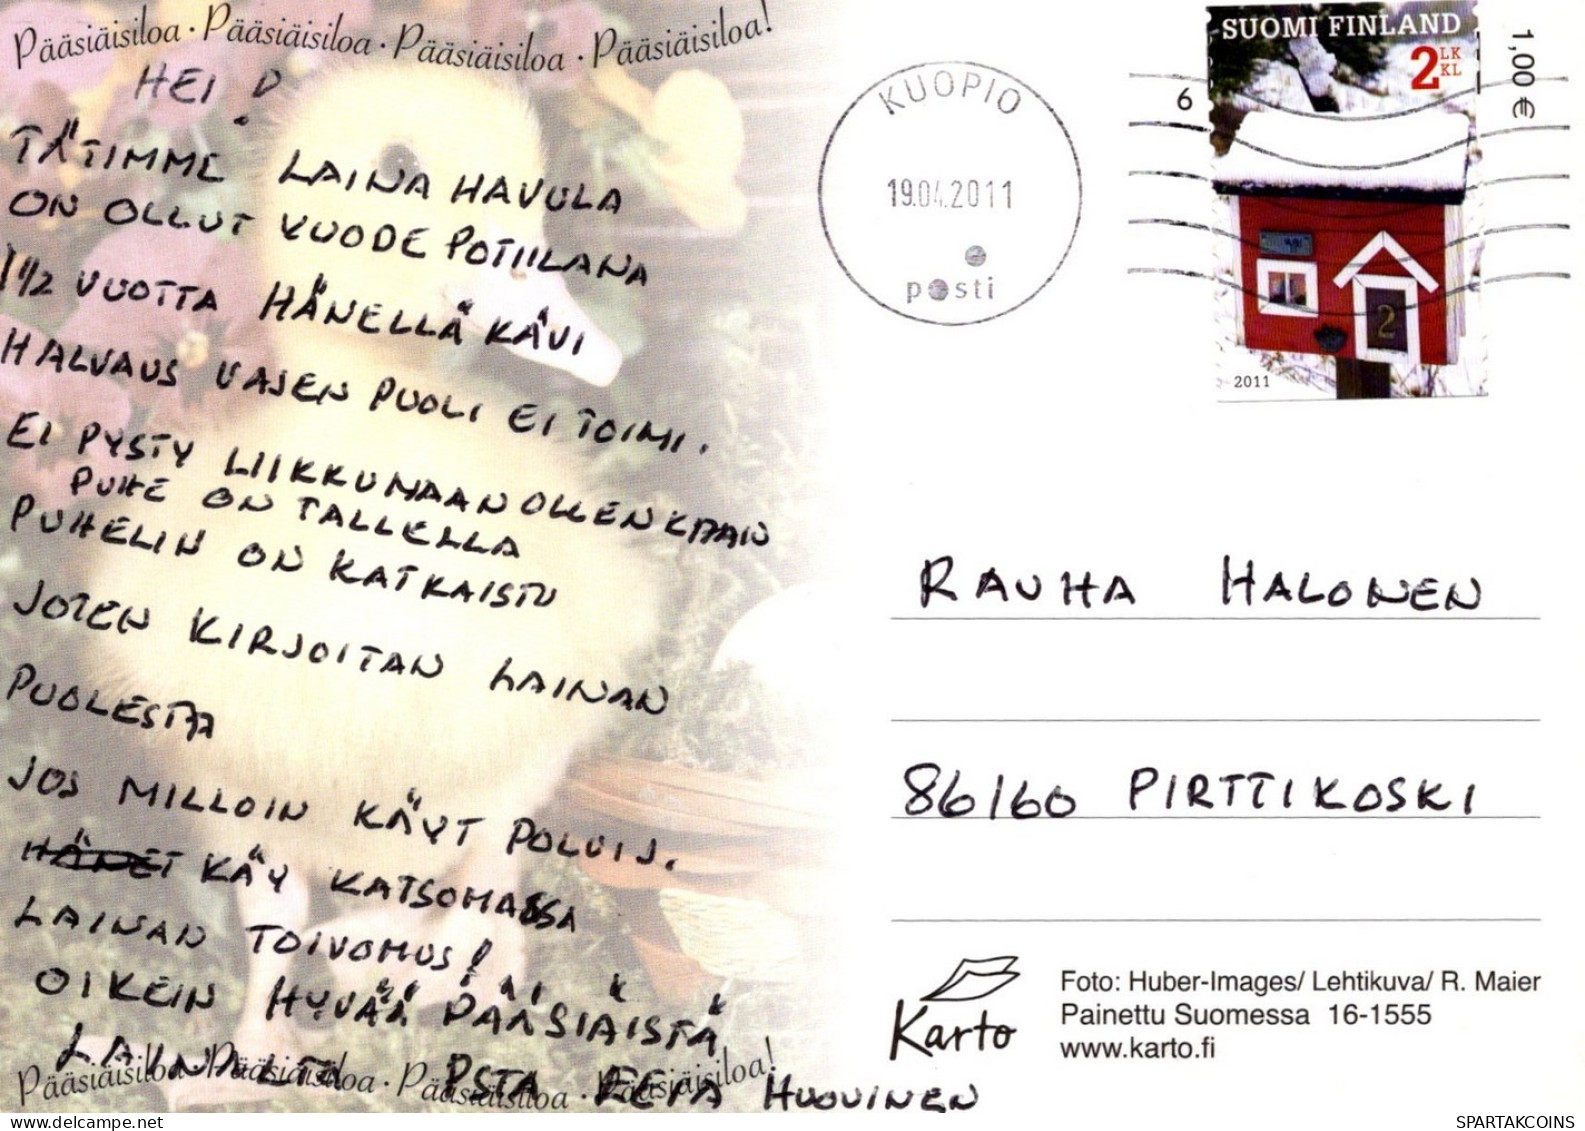 Pääsiäisiloa · Pääsiäisiloa · Pääsiäisiloa · Pääsiäisiloa!
HEI !
TÄTIMME LAINA HAVULA
ON OLLUT VUODE POTIILANA
1 1/2 VUOTTA HÄNELLÄ KÄVI
HALVAUS VASEN PUOLI EI TOIMI.
EI PYSTY LIIKKUMAAN OLLENKAAN
PUHE ON TALLELLA
PUHELIN ON KATKAISTU
JOTEN KIRJOITAN LAINAN
PUOLESTA
JOS MILLOIN KÄYT POLVIJ.
KÄY KATSOMASSA
LAINAN TOIVOMUS!
OIKEIN HYVÄÄ PÄÄSIÄISTÄ
LAINALTA PSTA EEVA HUOVINEN
Pääsiäisiloa · Pääsiäisiloa · Pääsiäisiloa · Pääsiäisiloa!
KUOPIO
19.04.2011
posti
6
SUOMI FINLAND
2 LK KL
2
2011
1,00 €
RAUHA HALONEN
86160 PIRTTIKOSKI
Karto
Foto: Huber-Images/ Lehtikuva/ R. Maier
Painettu Suomessa 16-1555
www.karto.fi
SPARTAKCOINS